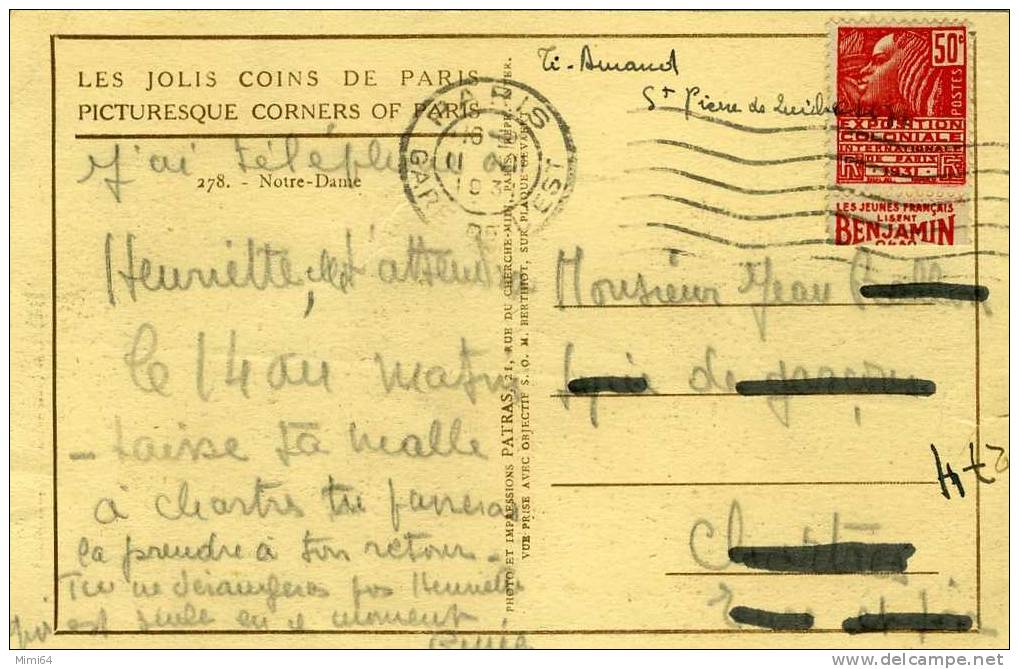 LES JOLIS COINS DE PARIS
PICTURESQUE CORNERS OF PARIS
278. - Notre-Dame
J'ai téléphoné à
Henriette, elle t'attendra
le 14 au matin
- Laisse ta malle
à Chartres tu passeras
la prendre à ton retour -
Tu ne dérangeras pas Henriette
qui est seule en ce moment
PHOTO ET IMPRESSIONS PATRAS, 21, RUE DU CHERCHE-MIDI, PARIS
VUE PRISE AVEC OBJECTIF S. O. M. BERTHIOT, SUR PLAQUE GEVAERT
PARIS
GARE
EST
St Pierre de
50c
POSTES
EXPOSITION
COLONIALE
INTERNATIONALE
DE PARIS
1931
LES JEUNES FRANÇAIS
LISENT
BENJAMIN
Monsieur Jean
Lycée de garçons
Chartres
Eure et Loir
Mimi64
www.delcampe.net